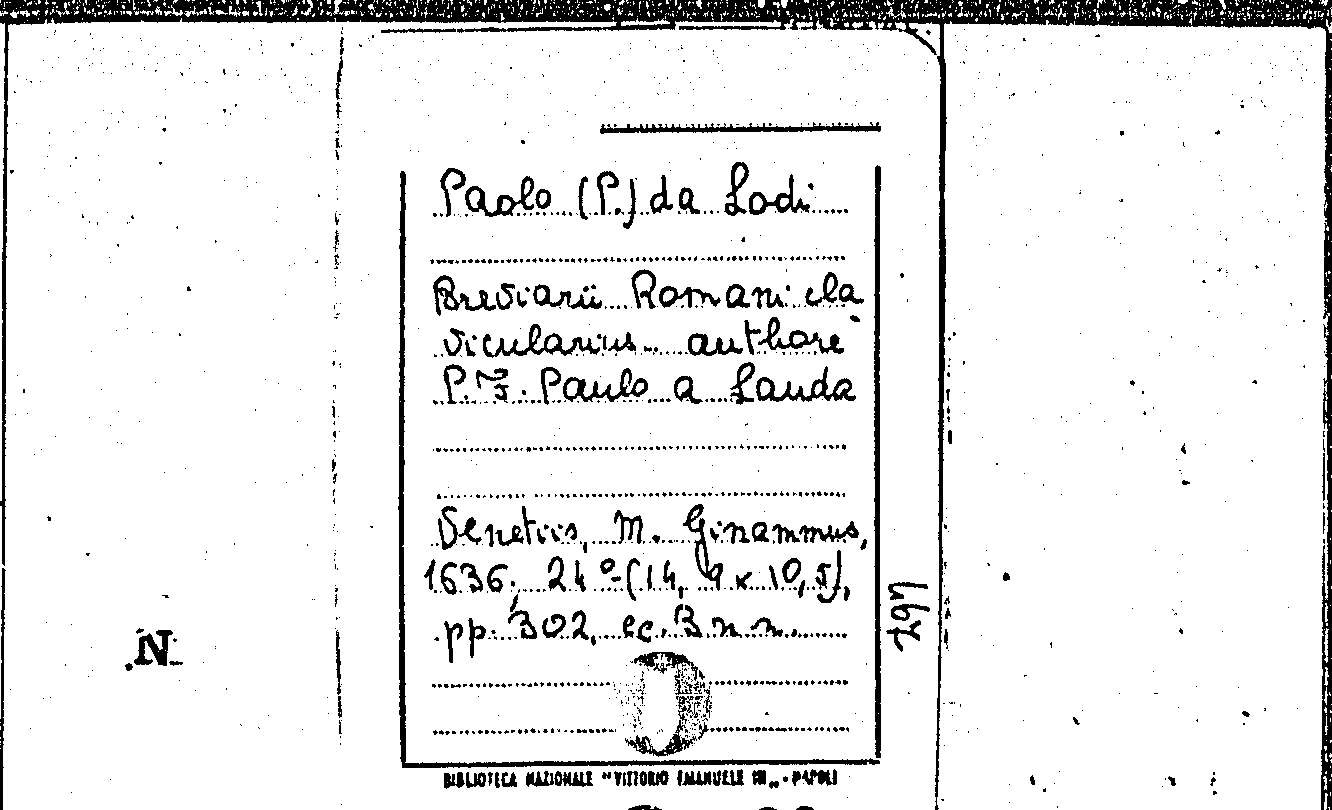 Paolo (P.) da Lodi
Breviarii Romani cla
vicularius authore
P. F. Paulo a Lauda
Venetiis, M. Ginammus,
1636; 24º (14, 9 x 10, 5),
pp. 302, ec. 3 n. n.
297
.N
BIBLIOTECA NAZIONALE "VITTORIO EMANUELE III„ - NAPOLI